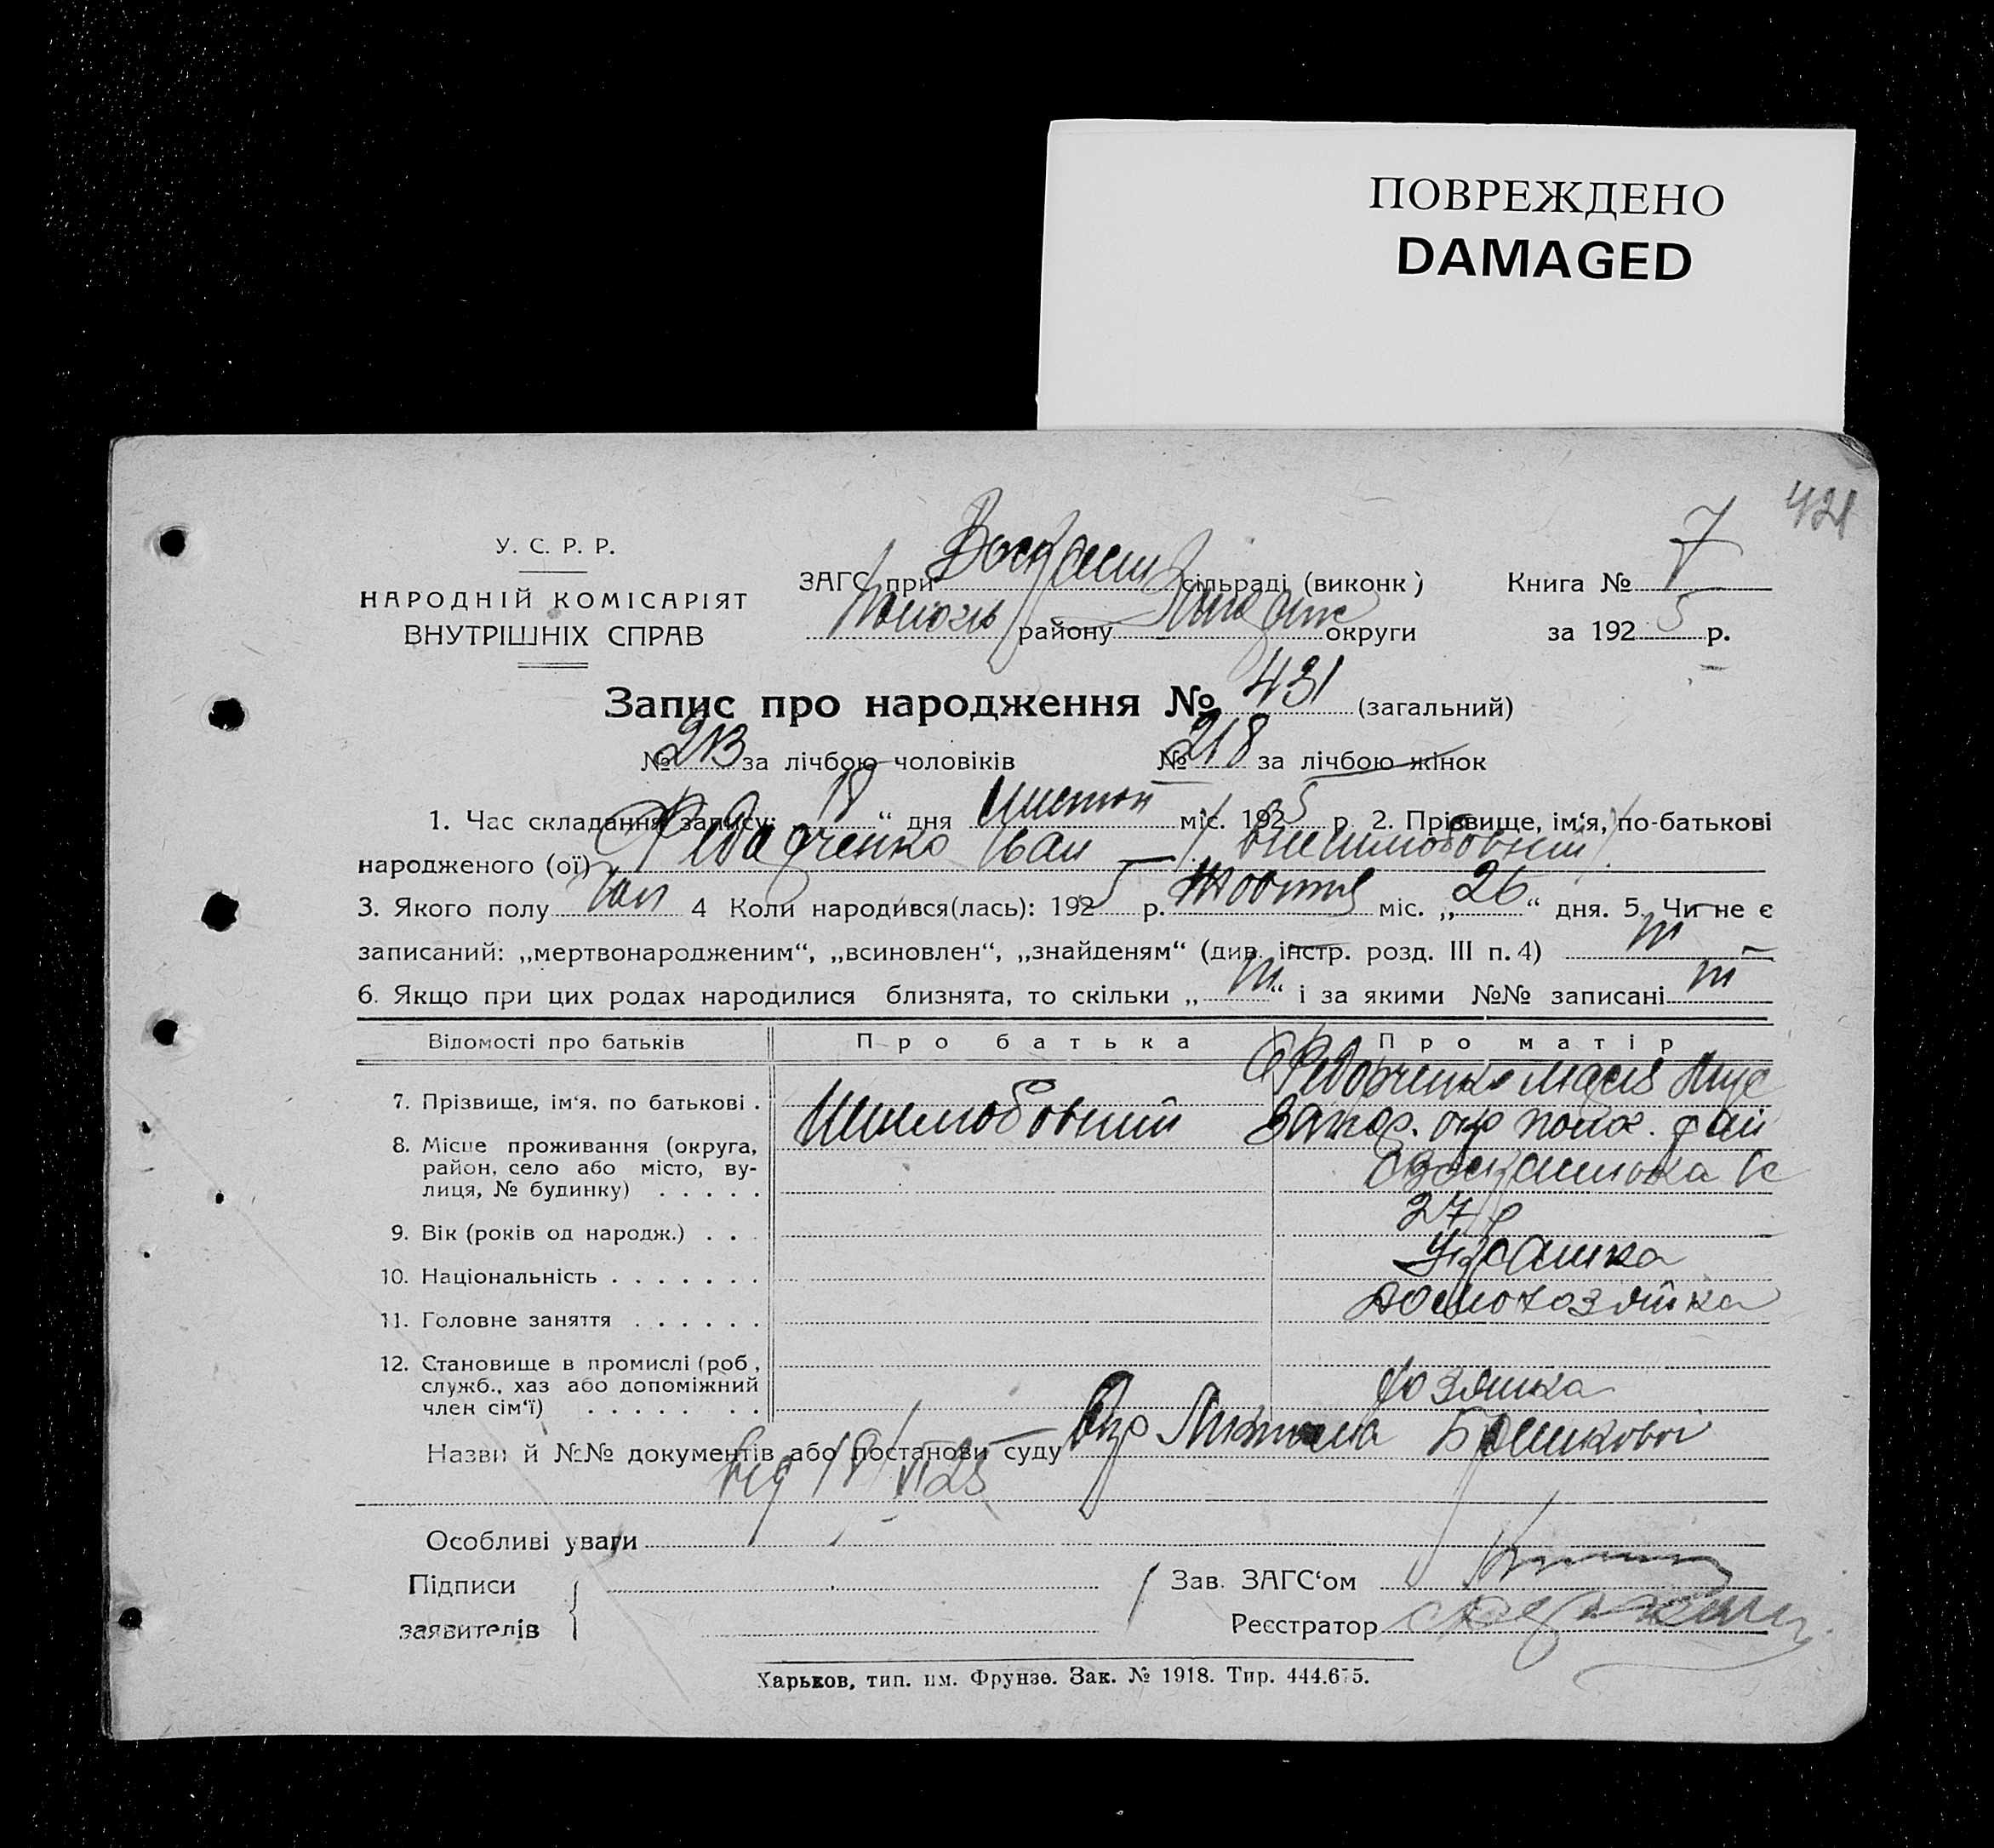 ПОВРЕЖДЕНО
DAMAGED
421
У. С. Р. Р.
НАРОДНІЙ КОМІСАРІЯТ
ВНУТРІШНІХ СПРАВ
ЗАГС при сільраді (виконк)
району округи
Книга № 7
за 1925 р.
Запис про народження № 431 (загальний)
№ 213 за лічбою чоловіків № 218 за лічбою жінок
1. Час складання запису: 18 “ дня міс. 1925 р. 2. Прізвище, ім‘я, по-батькові
народженого (ої) Іван
3. Якого полу чол 4 Коли народився(лась): 1925 р. Жовтня міс. „ 26 “ дня. 5. Чи не є
записаний: „мертвонародженим“, „всиновлен“, „знайденям“ (див. інстр. розд. III п. 4) ні
6. Якщо при цих родах народилися близнята, то скільки „ ні “ і за якими №№ записані ні
Відомості про батьків Про батька Про матір
7. Прізвище, ім‘я, по батькові . Федорченко Марія
Шлюбовний
8. Місце проживання (округа,
район, село або місто, ву-
лиця, № будинку) . . . . . Запор. окр район
9. Вік (років од народж.) . . . 27 р
10. Національність . . . . . . . Українка
11. Головне заняття . . . . . . Домохозяйка
12. Становище в промислі (роб.,
служб., хаз або допоміжний
член сім‘ї) . . . . . . . Хозяйка
Назви й №№ документів або постанови суду
від 18/
Особливі уваги
Підписи
заявителів
Зав. ЗАГС‘ом
Реєстратор
Харьков, тип. им. Фрунзе. Зак. № 1918. Тир. 444.675.